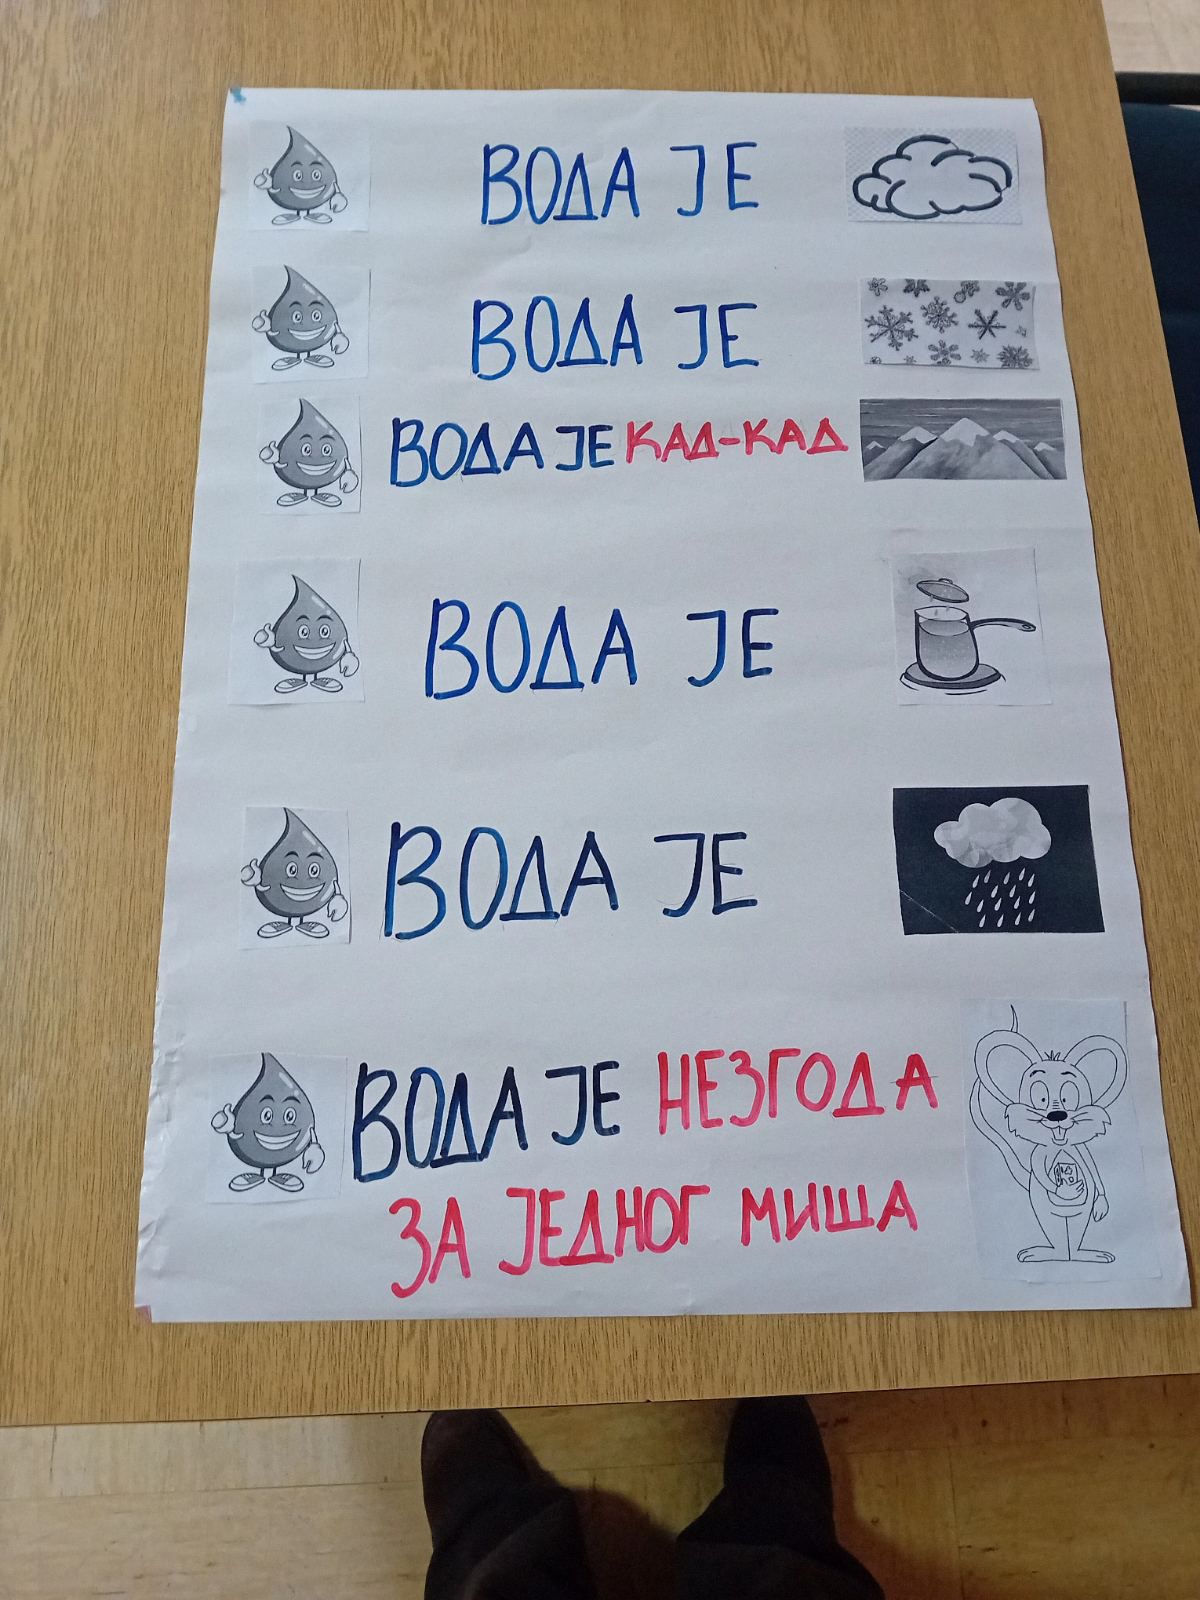 ВОДА ЈЕ
ВОДА ЈЕ
ВОДА ЈЕ КАД-КАД
ВОДА ЈЕ
ВОДА ЈЕ
ВОДА ЈЕ НЕЗГОДА
ЗА ЈЕДНОГ МИША